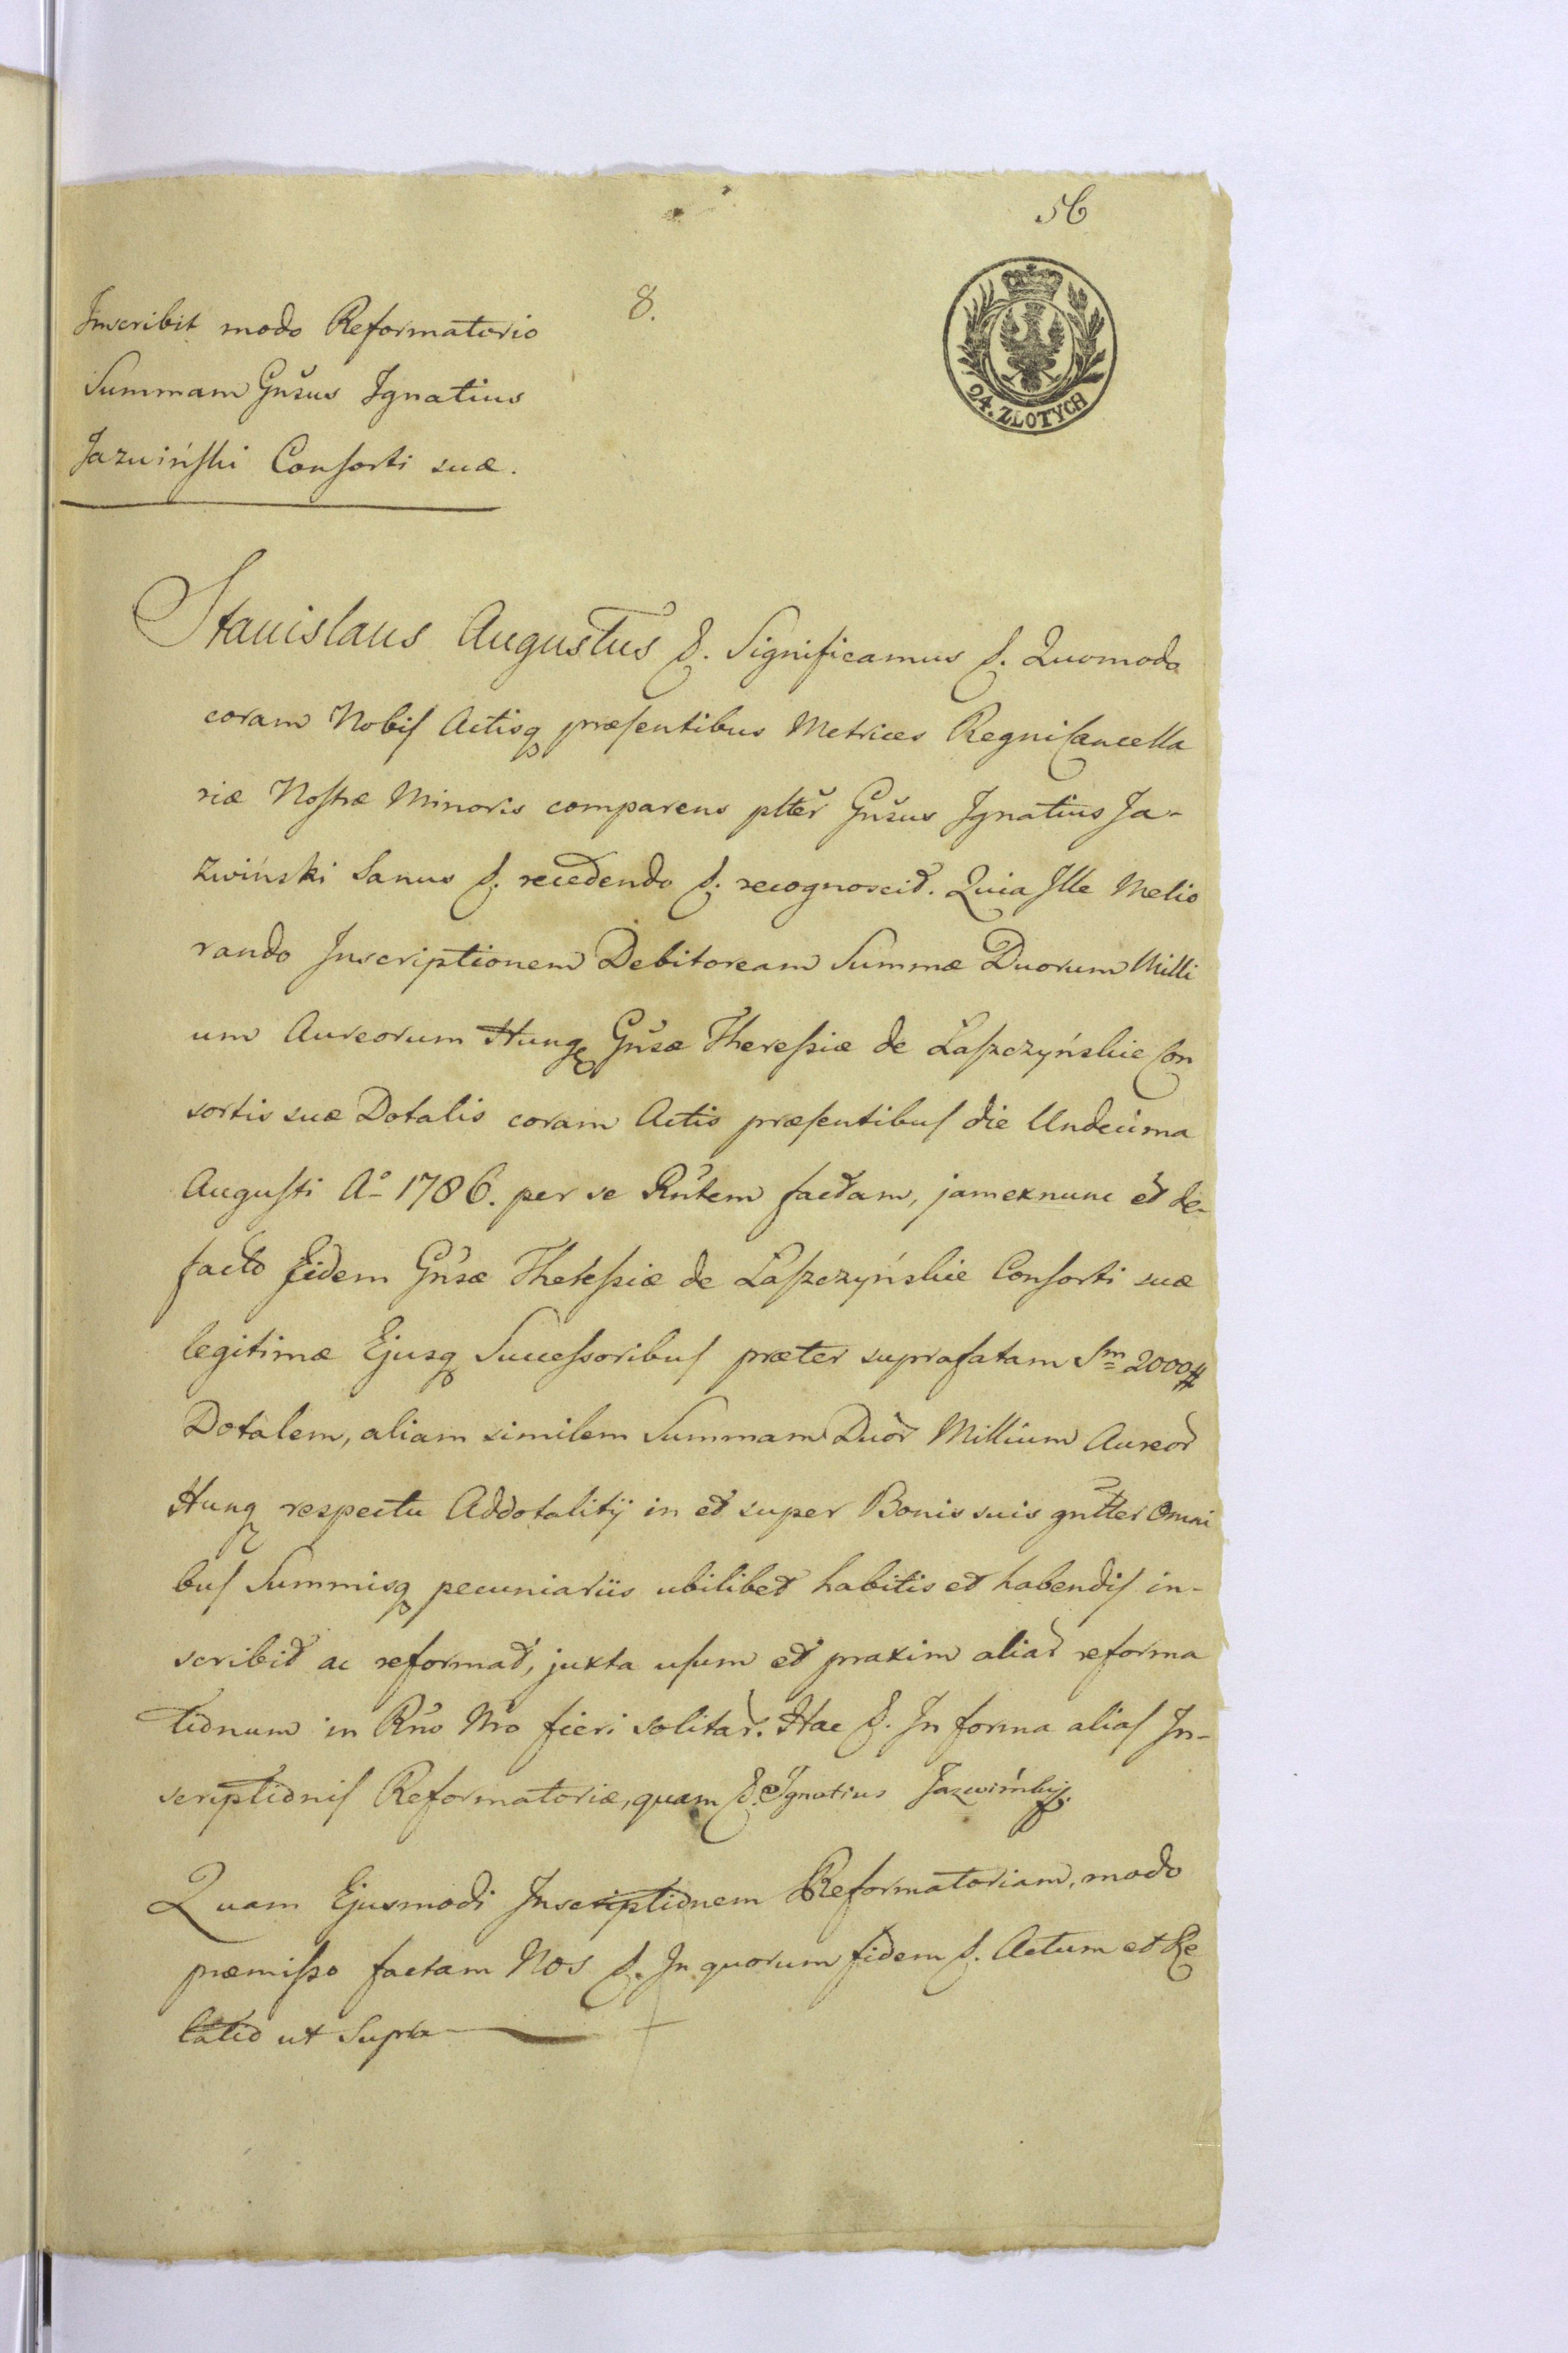 56
8.
24. ZLOTYCH
Inscribit modo Reformatorio
Summam Gnsus Ignatius
Jazwiński Consorti suæ.
Stanislaus Augustus &. Significamus &. Quomodo
coram Nobis Actisq præsentibus Metrices Regni Cancella
riæ Nostræ Minoris comparens plter Gnsus Ignatius Ja-
zwiński Sanus &. recedendo &. recognoscit. Quia Ille Melio
rando Inscriptionem Debitoream Summæ Duorum Milli
um Aureorum Hung Gnsæ Theressiæ de Laszczyńskie Con
sortis suæ Dotalis coram Actis præsentibus die Undecima
Augusti Ao 1786. per se Rntem factam, jam exnunc et de-
facto Eidem Gnsæ Theressiæ de Laszczyńskie Consorti suæ
legitimæ Ejusq Successoribus præter suprafatam Sm 2000 #
Dotalem, aliam similem Summam Duor Millium Aureor
Hung respectu Addotalitij in et super Bonis suis gntter Omni
bus Summisq pecuniariis ubilibet habitis et habendis in-
scribit ac reformat, juxta usum et praxim aliar reforma
tionum in Rno Nro fieri solitar. Hac &. In forma alias In-
scriptionis Reformatoriæ, quam &. Ignatius Jazwiński
Quam Ejusmodi Inscriptionem Reformatoriam, modo
præmisso factam Nos &. In quorum fidem &. Actum et Re
latio ut Supra